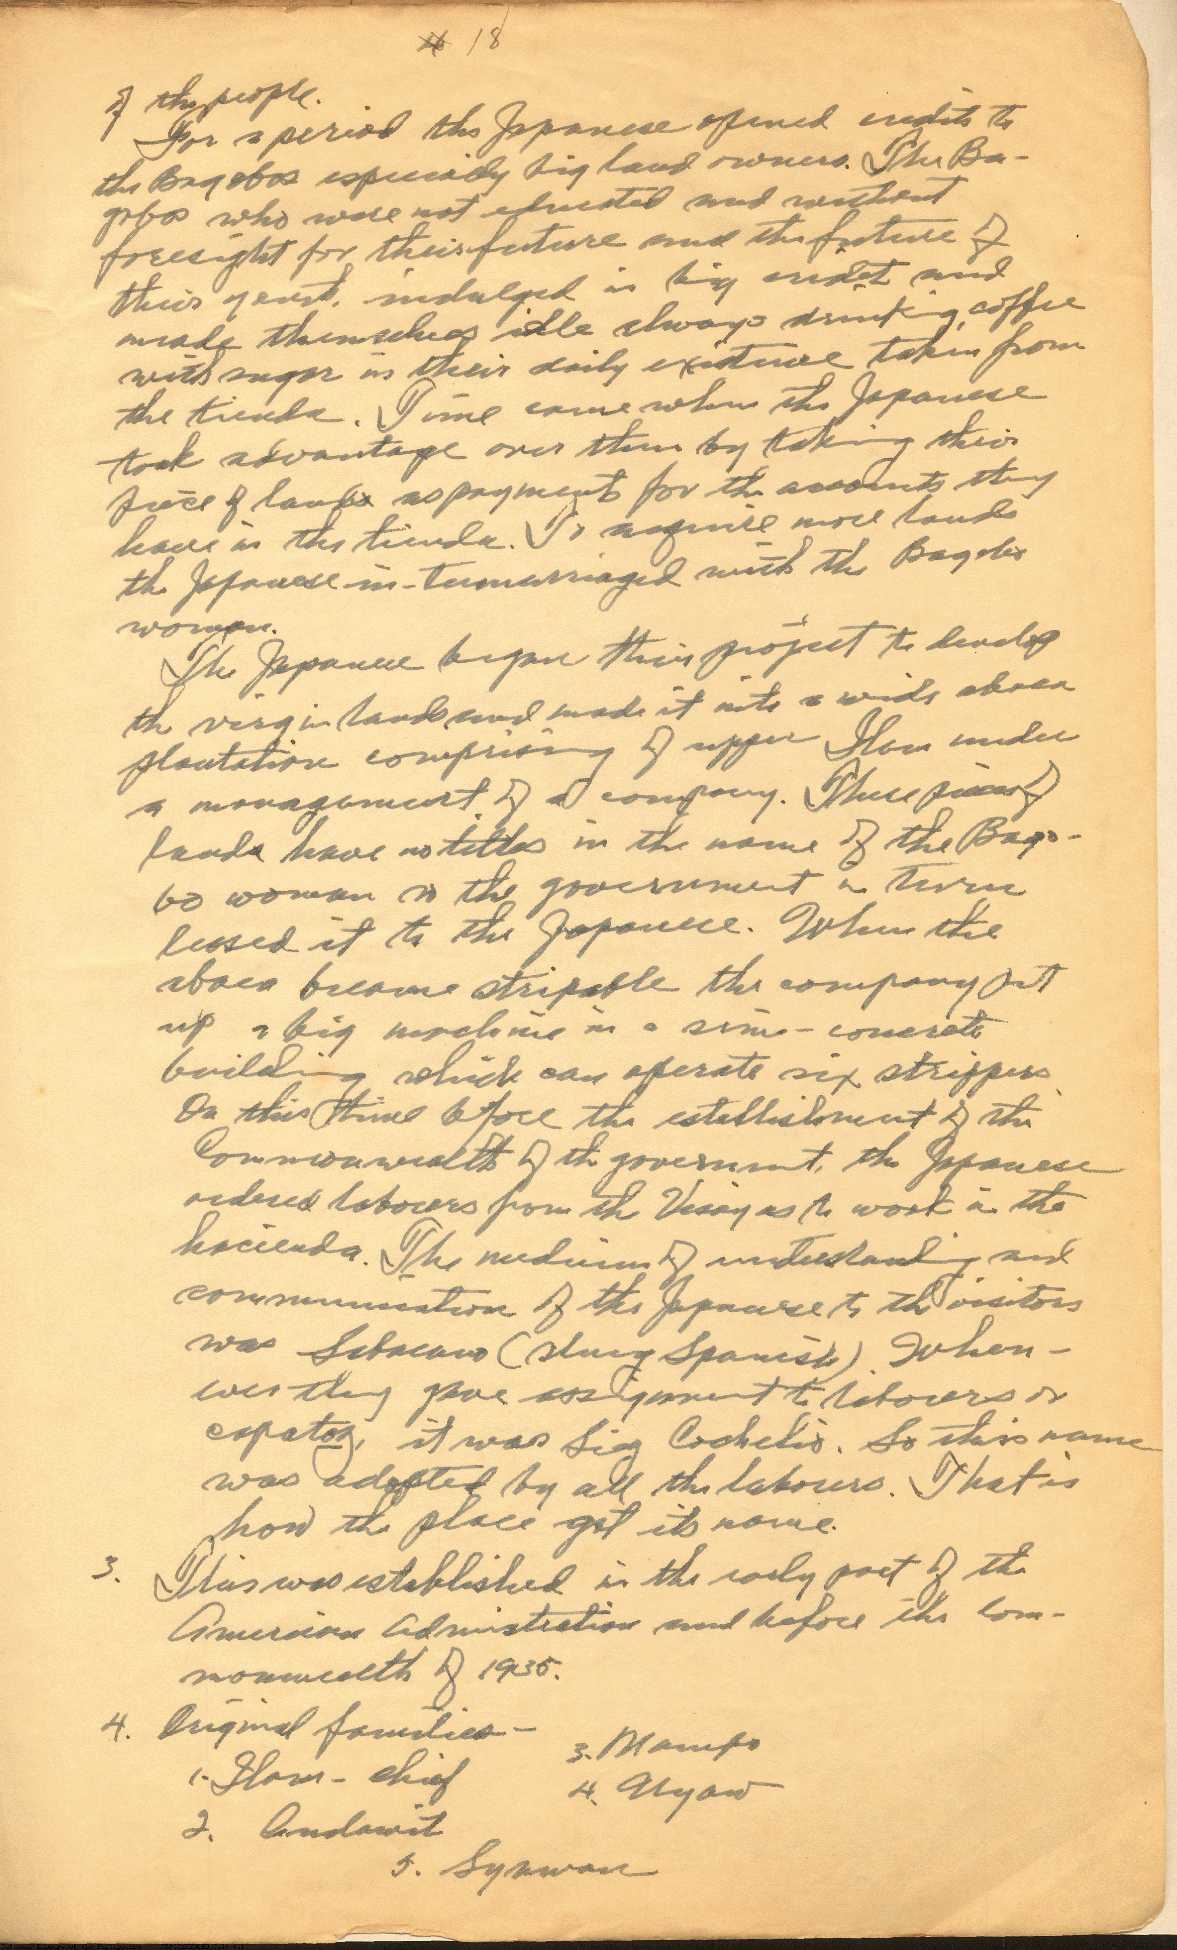 18
of the people.
For a period the Japanese opened credits to
the Bagobos especially big land owners. The Ba-
gobos who were not educated and without
foresight for their future and the future of
their, indulged in big credit and
made themselves idle always drinking coffee
with sugar in their daily existence taken from
the tienda. Time came when the Japanese
took advantage over them by taking their
piece of lands as payments for the accounts they
have in the tienda. To acquire more lands
the Japanese in-termarriaged with the Bagobo
woman.
The Japanese began their project to develop
the virgin lands and made it into a wide abaca
plantation comprising of upper Ilan under
a management of a company. These pieces of
lands have no titles in the name of the Bago-
bo woman so the government in turn
leased it to the Japanese. When the
abaca became stripable the company put
up a big machine in a simi-concrete
building which can operate six strippers.
On this time before the establishment of the
Commonwealth of the government, the Japanese
ordered laborers from the Visayas to work in the
hacienda. The medium of understanding and
communication of the Japanese to the visitors
was Sabacano (slang Spanish). When-
ever they gave assignment to laborers or
capataz, it was Sig Cochelio. So this name
was adopted by all the laborers. That is
how the place got its name.
3. This was established in the early part of the
American Admistration and before the Com-
monwealth of 1935.
4. Original families-
1. Ilan - chief
3. Mampo
4. Uyaw
2. Andawit
5. Synwan